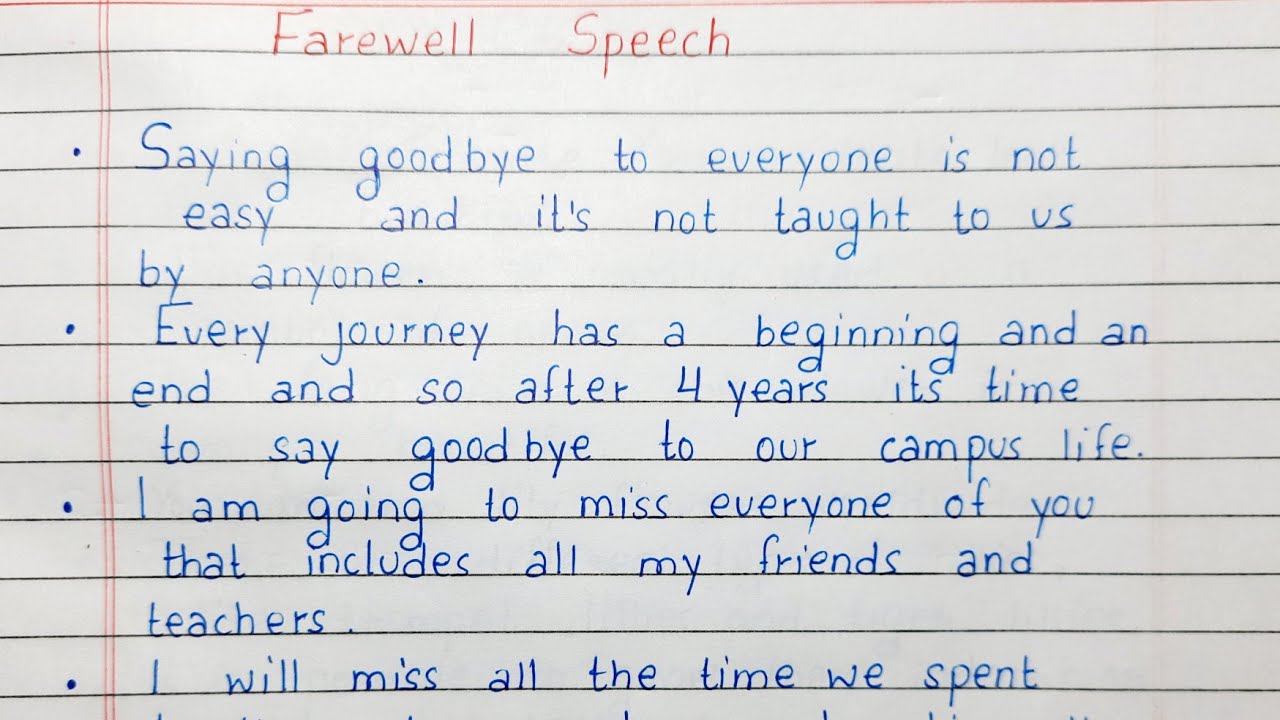 Farewell Speech
• Saying goodbye to everyone is not
easy and it's not taught to us
by anyone.
• Every journey has a beginning and an
end and so after 4 years its time
to say goodbye to our campus life.
• I am going to miss everyone of you
that includes all my friends and
teachers.
• I will miss all the time we spent